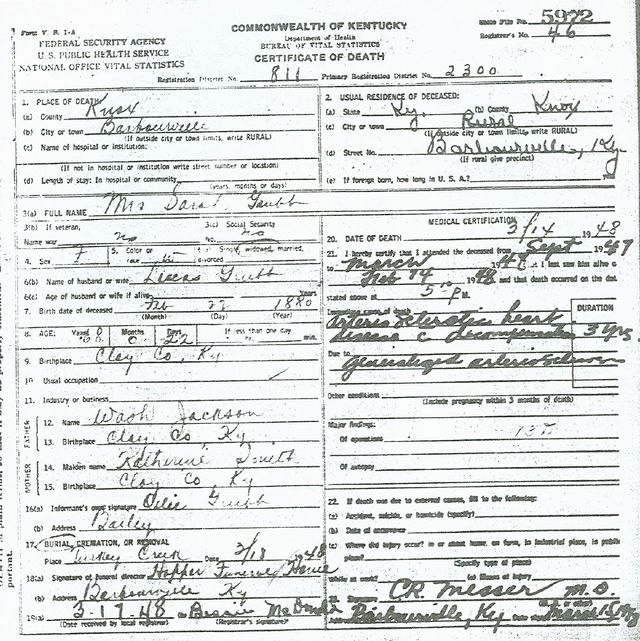 Form V. S. 1-A
FEDERAL SECURITY AGENCY
U. S. PUBLIC HEALTH SERVICE
NATIONAL OFFICE VITAL STATISTICS
COMMONWEALTH OF KENTUCKY
Department of Health
BUREAU OF VITAL STATISTICS
CERTIFICATE OF DEATH
State File No. 5972
Registrar's No. 46
Registration District No. 811 Primary Registration District No. 2300
1. PLACE OF DEATH
(a) County Knox
(b) City or town Barbourville
(If outside city or town limits, write RURAL)
(c) Name of hospital or institution:
(If not in hospital or institution write street number or location)
(d) Length of stay: In hospital or community
(years, months or days)
2. USUAL RESIDENCE OF DECEASED:
(a) State Ky. (b) County Knox
(c) City or town Rural
(If outside city or town limits, write RURAL)
(d) Street No. Barbourville, Ky
(If rural give precinct)
(e) If foreign born, how long in U. S. A.?
3(a) FULL NAME Mrs Sara Grubb
3(b) If veteran,
Name war no
3(c) Social Security
No. no
4. Sex F 5. Color or race W 6(a) Single, widowed, married, divorced
6(b) Name of husband or wife Lucas Grubb
6(c) Age of husband or wife if alive Years
7. Birth date of deceased Feb 22 1880
(Month) (Day) (Year)
8. AGE: Years 68 Months 0 Days 22 If less than one day
hr. min.
9. Birthplace Clay Co, Ky
10. Usual occupation
11. Industry or business
FATHER
12. Name Wash Jackson
13. Birthplace Clay Co, Ky.
MOTHER
14. Maiden name Katherine Smith
15. Birthplace Clay Co, Ky
16(a) Informant's own signature Grubb
(b) Address Bailey
17. BURIAL, CREMATION, OR REMOVAL
Place Turkey Creek Date 3/18 1948
18(a) Signature of funeral director Hopper Funeral Home
(b) Address Barbourville Ky
19(a) 3-17-48 (b) Bessie McDonald
(Date received by local registrar) (Registrar's signature)
MEDICAL CERTIFICATION
20. DATE OF DEATH 3/14 1948
21. I hereby certify that I attended the deceased from Sept 1947
to March 1948 that I last saw him alive on
Feb 14 1948 and that death occurred on the date
stated above at 5 P M.
Immediate cause of death
Arteriosclerotic heart
disease c decompensation
DURATION
3 yrs.
Due to
Generalized arteriosclerosis
Other conditions
(Include pregnancy within 3 months of death)
Major findings:
Of operations
Of autopsy
22. If death was due to external causes, fill in the following:
(a) Accident, suicide, or homicide (specify)
(b) Date of occurrence
(c) Where did injury occur? in or about home, on farm, in industrial place, in public
place?
(Specify type of place)
While at work? (e) Means of injury
23. Signature C.R. Messer M.D.
Barbourville, Ky